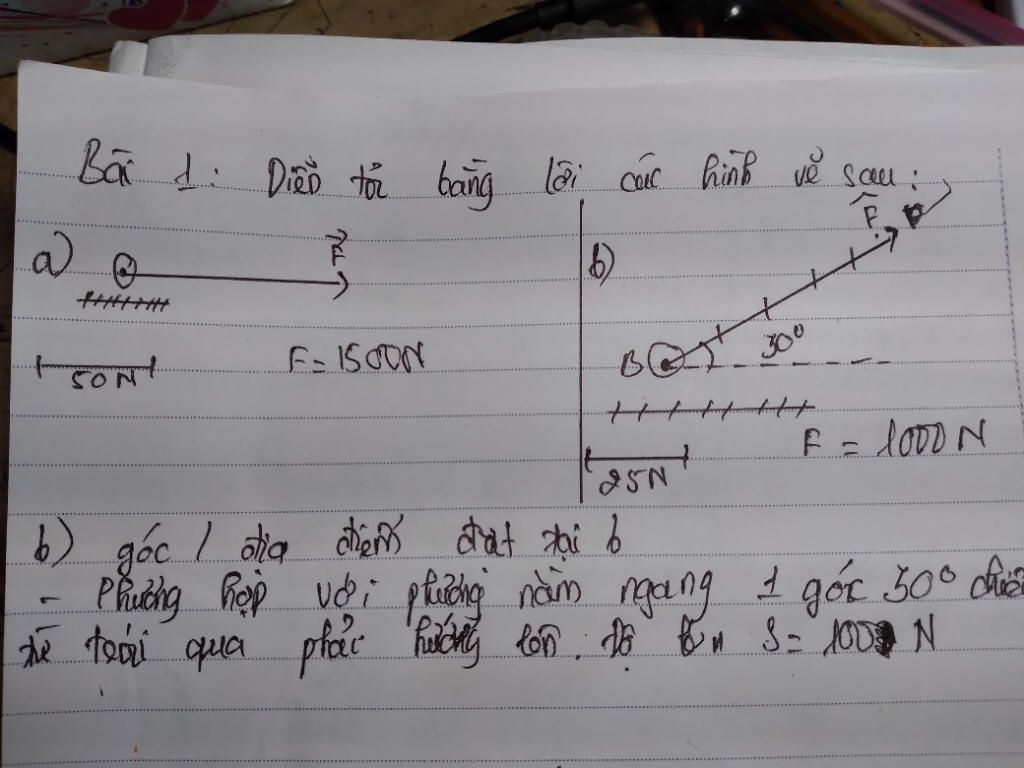 Bài 1: Diễn tả bằng lời các hình vẽ sau:
a)
F
F = 1500N
50 N
b)
F
B
30°
F = 1000 N
25N
b) góc / địa điểm đặt tại b
- Phương hợp với phương nằm ngang 1 góc 30°
từ trái qua phải hướng lên. độ lớn S = 100 N